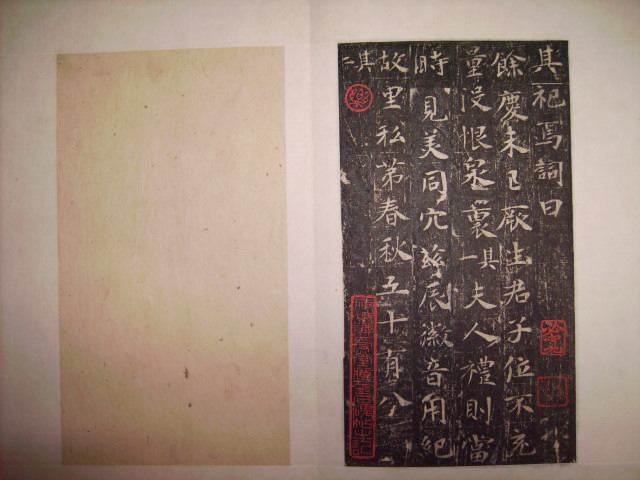 其祀焉詞曰
餘慶未已厥生君子位不充
量没恨泉裏其一夫人禮則當
時見美同穴兹辰徽音用紀
其二
故里私第春秋五十有八